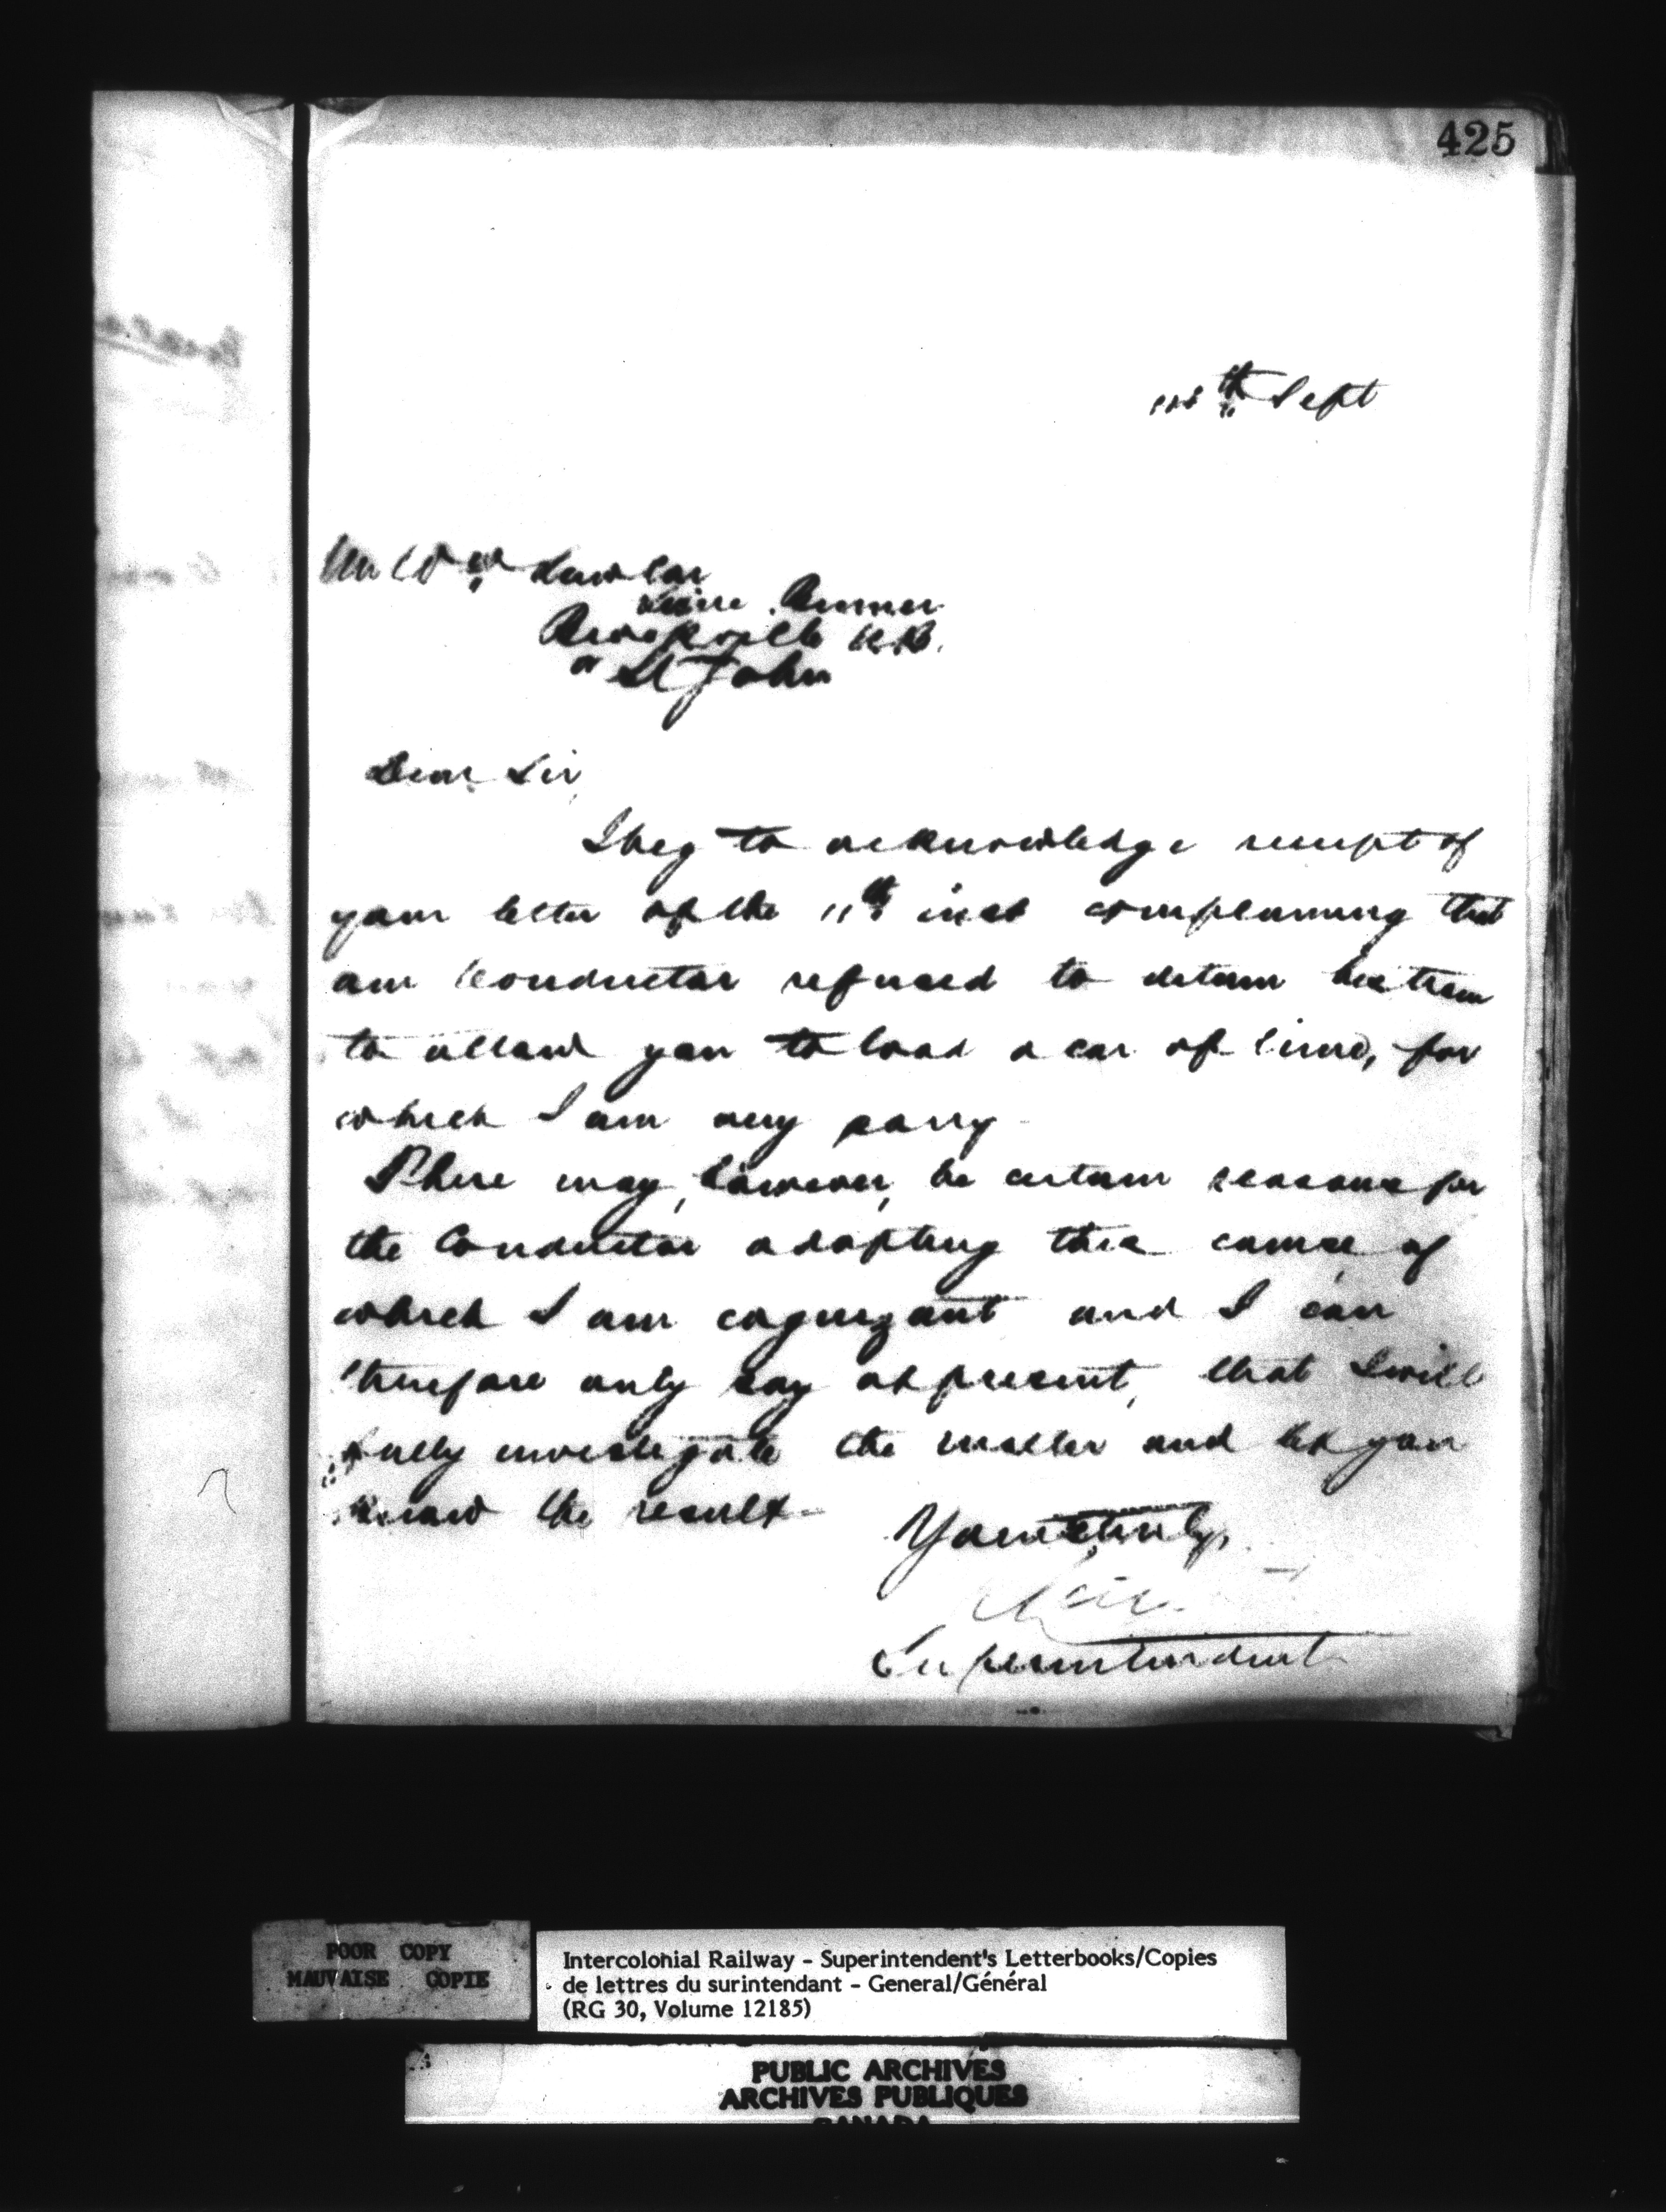 425
th Sept
Mr Wm Lawlor
Lime Burner
Brookville N.B.
or St John
Dear Sir,
I beg to acknowledge receipt of
your letter of the 11th inst complaining that
our Conductor refused to detain his train
to allow you to load a car of lime, for
which I am very sorry
There may, however, be certain reasons for
the Conductor adopting this course of
which I am cognizant and I can
therefore only say at present, that I will
fully investigate the matter and let you
know the result.
Yours truly,
Superintendent
POOR COPY
MAUVAISE COPIE
Intercolonial Railway - Superintendent's Letterbooks/Copies
de lettres du surintendant - General/Général
(RG 30, Volume 12185)
PUBLIC ARCHIVES
ARCHIVES PUBLIQUES
CANADA